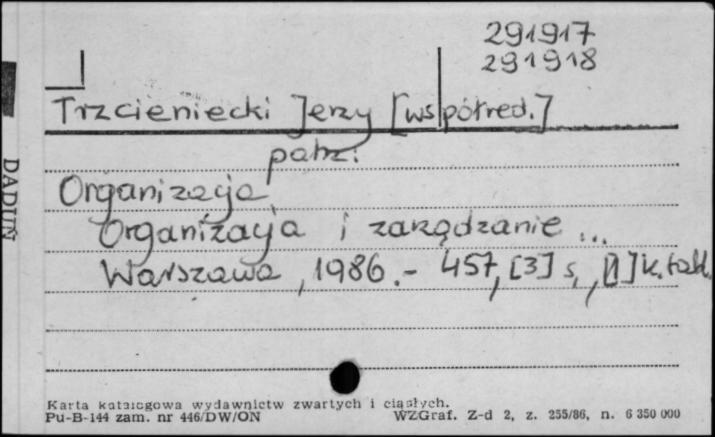 291917
291918
Trzcieniecki Jerzy [współred.]
patrz:
Organizacja
Organizacja i zarządzanie ...
Warszawa, 1986. - 457, [3] s., [1] k. tabl.
DADUŃ
Karta katalogowa wydawnictw zwartych i ciągłych.
Pu-B-144 zam. nr 446/DW/ON WZGraf. Z-d 2, z. 255/86, n. 6 350 000